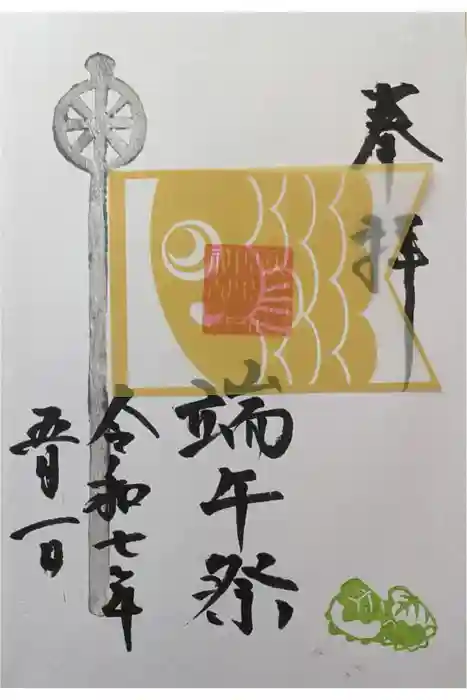 奉拝
端午祭
令和七年
五月一日